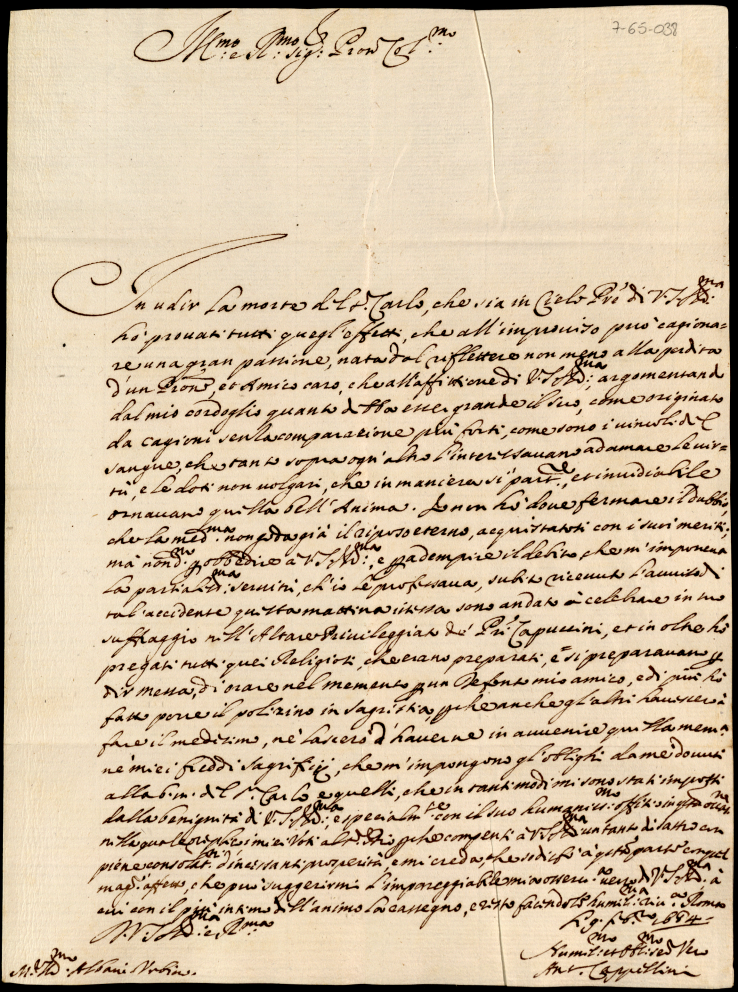 7-65-038
Ill.mo e R.mo Sig.r Pron Col.mo
In udir la morte del S.r Carlo, che sia in Cielo Prē di V.S. Ill.ma
hò provati tutti quegl'effetti, che all'improviso può cagiona=
re una gran passione, nata dal riflettere non meno alla perdita
d'un Pron.e, et Amico caro, che all'afflittione di V.S. Ill.ma: argomentando
dal mio cordoglio quanto d Ella esser grande il suo, come originato
da cagioni senza comparazione più forti, come sono i vincoli del
sangue, che tanto sopra ogn'altro l'interessavano ad amare le vir=
tù, e le doti non volgari, che in maniera sì part.re, et invidiabile
ornavano quella bell'Anima. Io non hò dove fermare il dubbio,
che la med.ma non goda già il riposo eterno, acquistatosi con i suoi meriti;
mà nond.mo p obbedire à V.S. Ill.ma, e p adempire il debito che m'imponeva
la partialiss.ma servitù, ch'io le professava, subito ricevuto l'avviso di
tal'accidente questa mattina istessa sono andato à celebrare in suo
suffragio nell'Altare Privileggiato de' Pri Capuccini, et in oltre hò
pregati tutti quei Religiosi, che erano preparati, e si preparavano p
dir messa, di orare nel memento p un Defonto mio amico, e di più hò
fatto porre il polizino in Sagristia, pche anche gl'altri havessero à
fare il medesimo, nè lascerò d'haverne in avvenire quella mem.a
ne' miei freddi sagrifizij, che m'impongono gl'oblighi da me dovuti
alla b.m. del S.r Carlo e quelli, che in tanti modi mi sono stati imposti
dalla benignità di V.S. Ill.ma, e specialm.te con il suo humaniss.mo offitio in
nella quale replico i miei Voti al pche compensi à V.S. Ill.ma un tanto disastro con
piene consolat.ni d'incessanti prosperità, e mi creda, che sodisfò à questo parto con quel
mag. affetto, che può suggerirmi l'impareggiabile mia osserv. verso di V.S. Ill.ma, à
cui con il più intimo dell'animo la rassegno, e resto facendole humiliss.ma riv.a Roma
D. V.S. Ill.ma e R.ma
1684
M. Albani Urbino.
Humil.mo et obblig.mo Ser.re Vero
Ant. Cappellini